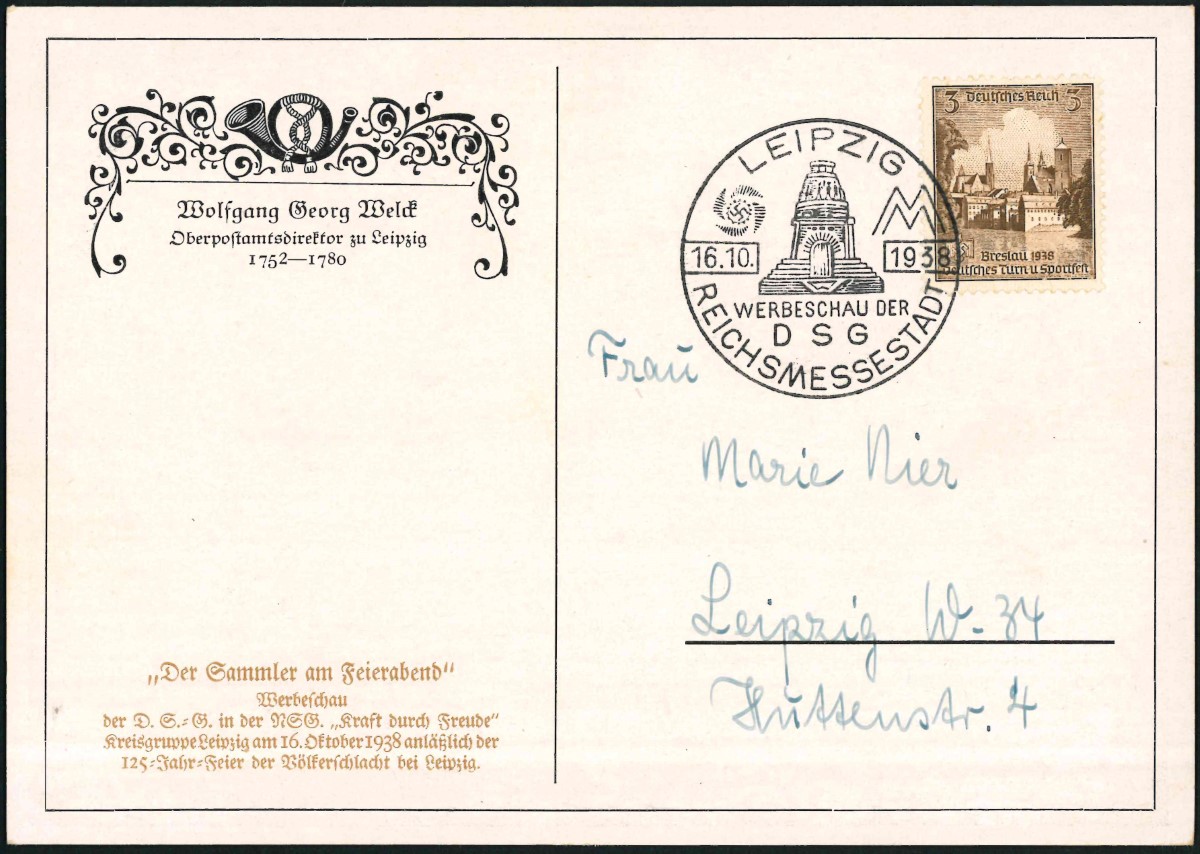 Wolfgang Georg Welck
Oberpostamtsdirektor zu Leipzig
1752—1780
„Der Sammler am Feierabend"
Werbeschau
der D. S.-G. in der NSG. „Kraft durch Freude"
Kreisgruppe Leipzig am 16. Oktober 1938 anläßlich der
125-Jahr-Feier der Völkerschlacht bei Leipzig.
3 Deutsches Reich 3
Breslau 1938
Deutsches Turn u Sportfest
LEIPZIG
MM
16.10. 1938
WERBESCHAU DER
DSG
REICHSMESSESTADT
Frau
Marie Nier
Leipzig W-34
Huttenstr. 4